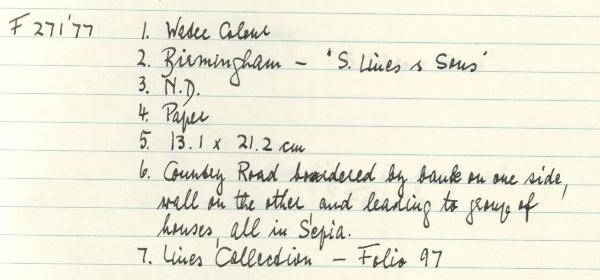 F 271'77 1. Water Colour
2. Birmingham - 'S. Lines & Sons'
3. N.D.
4. Paper
5. 13.1 x 21.2 cm
6. Country Road bordered by bank on one side,
wall on the other and leading to group of
houses, all in Sepia.
7. Lines Collection - Folio 97